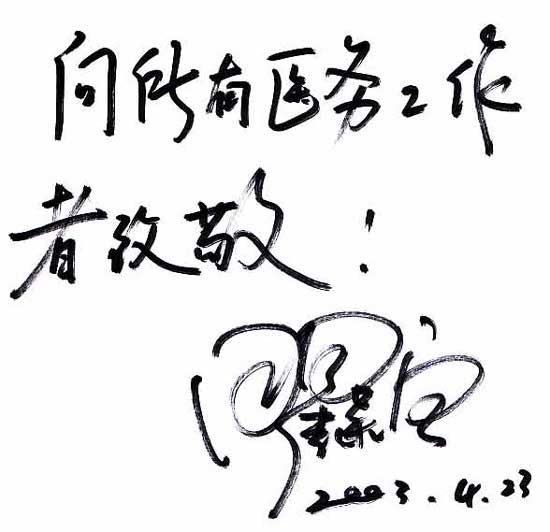 向所有医务工作
者致敬!
2003.4.23